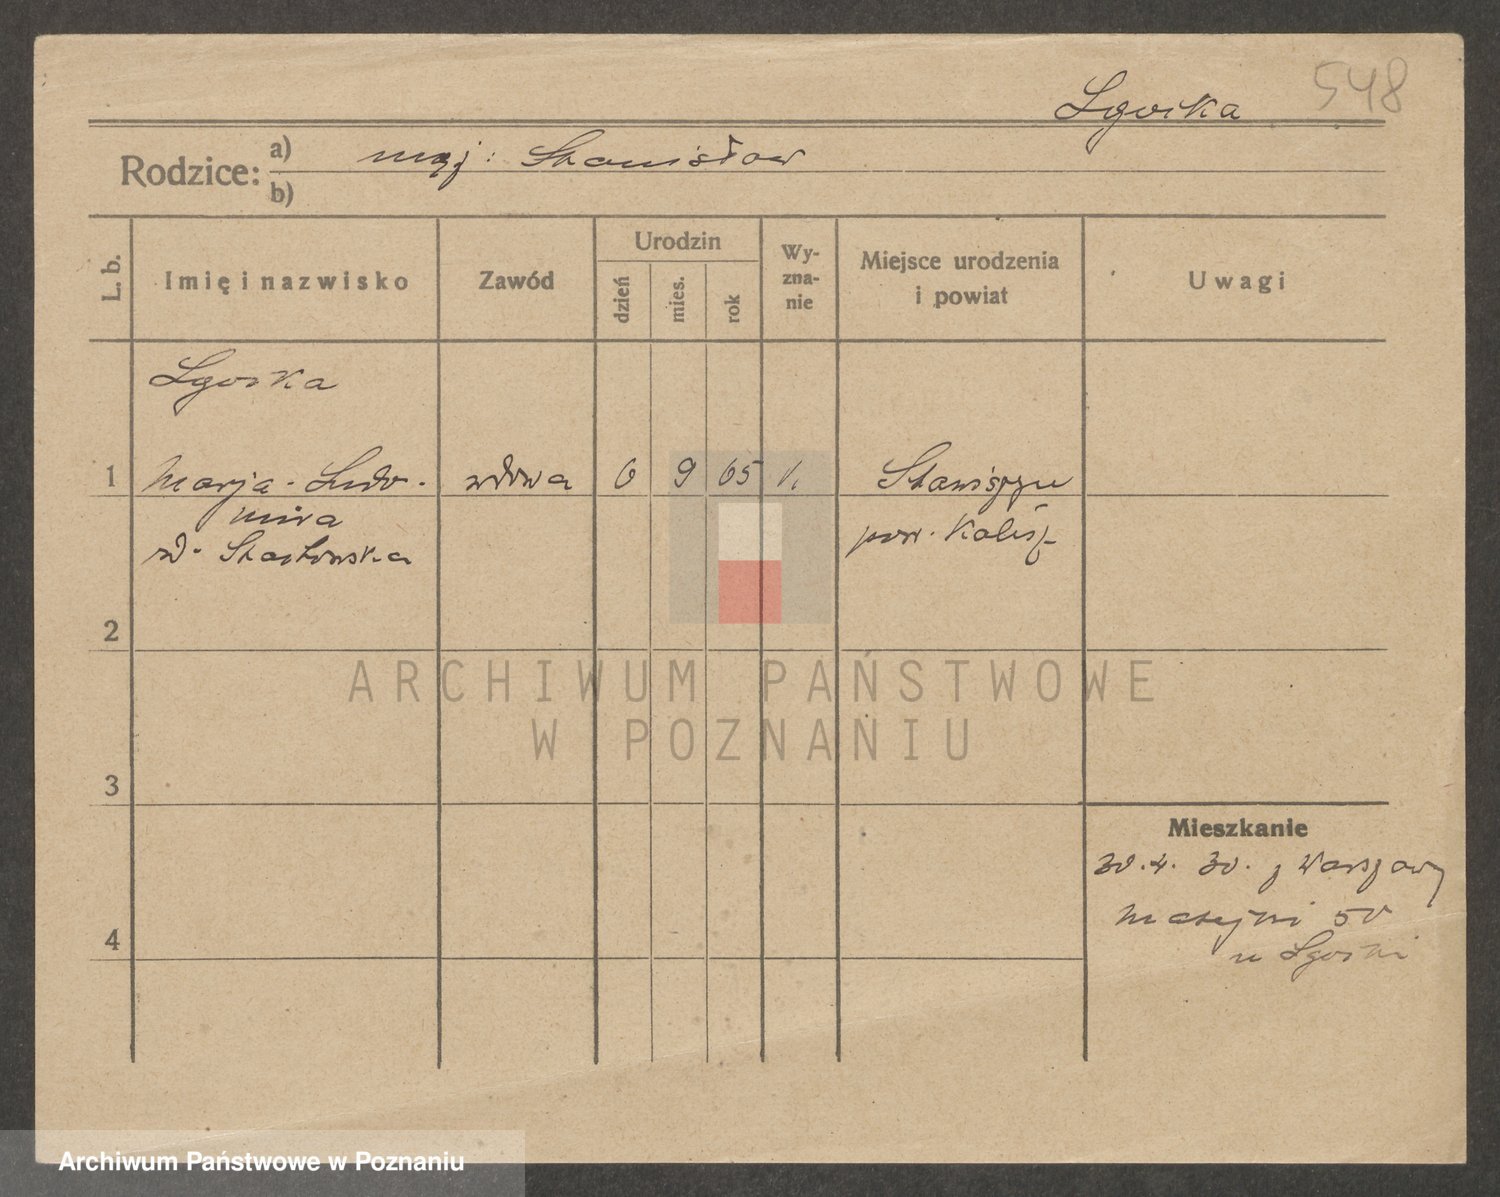 548
Lgocka
Rodzice: a) mąż: Stanisław
b)
L. b.
Imię i nazwisko
Zawód
Urodzin
dzień
mies.
rok
Wy-
zna-
nie
Miejsce urodzenia
i powiat
Uwagi
Lgocka
1 Marja-Ludo- wdowa 6 9 65 k.
mira
pow. Kalisz
2
3
4
Mieszkanie
30.4.30. z Warszawy
Matejki 50
u Lgocki
ARCHIWUM PAŃSTWOWE
W POZNANIU
Archiwum Państwowe w Poznaniu